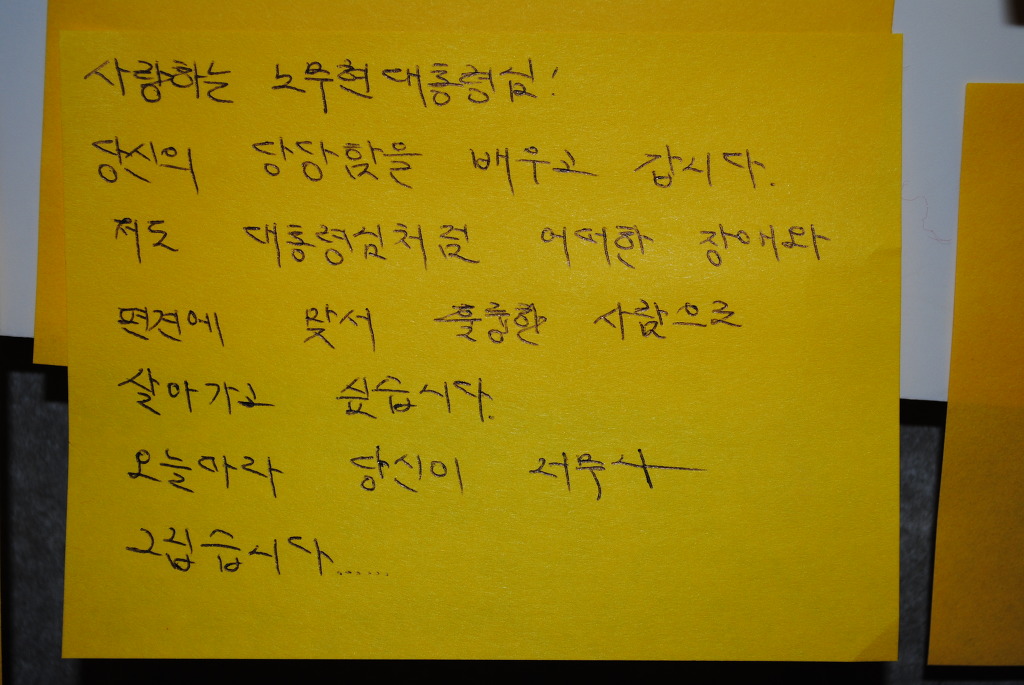 사랑하는 노무현대통령님!
당신의 당당함을 배우고 갑니다.
저도 대통령님처럼 어떠한 장애와
편견에 맞서 훌륭한 사람으로
살아가고 싶습니다.
오늘따라 당신이 너무나
그립습니다.......